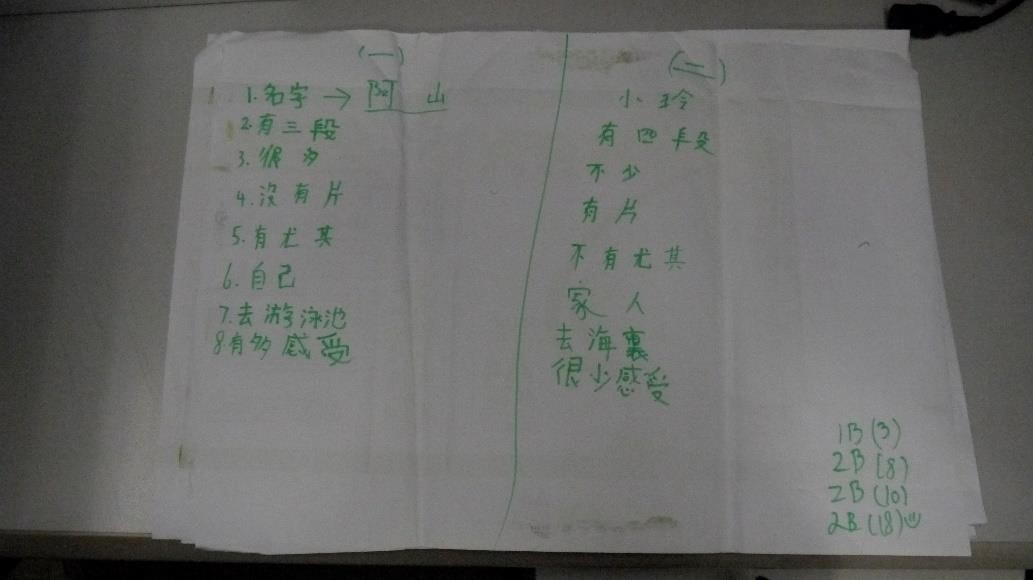 (一)
1. 名字 → 阿 山
2. 有三段
3. 很多
4. 沒有片
5. 有尤其
6. 自己
7. 去游泳池
8 有多感受
(二)
小玲
有四段
不少
有片
不有尤其
家人
去海裏
很少感受
1B (3)
2B (8)
2B (10)
2B (18)